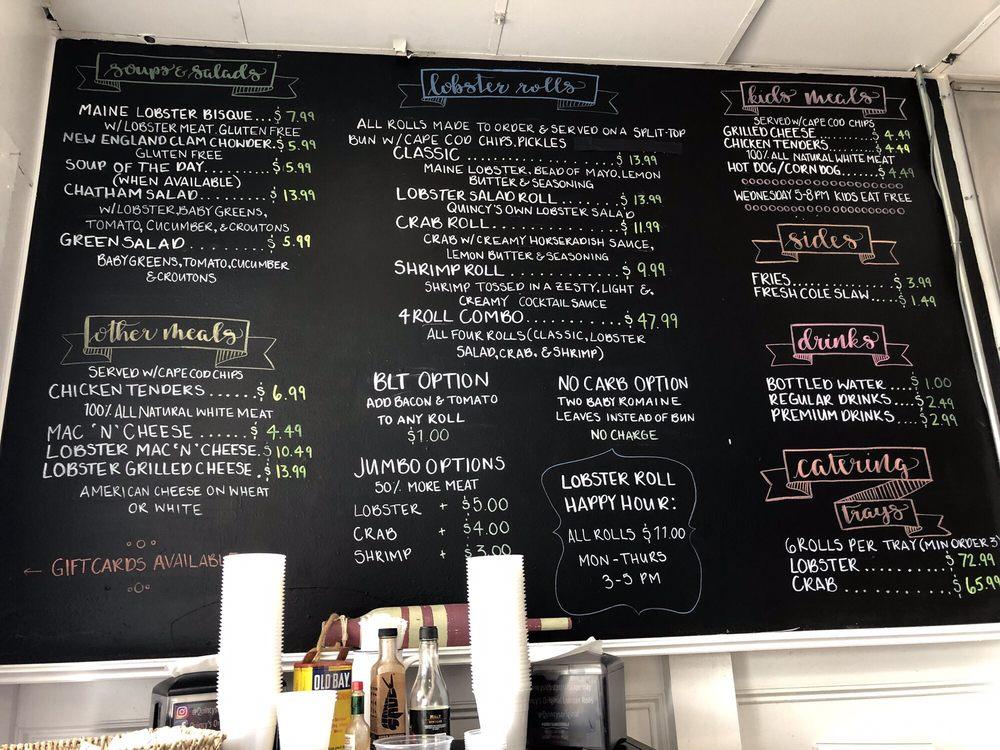 soups & salads
MAINE LOBSTER BISQUE...$ 7.99
W/LOBSTER MEAT. GLUTEN FREE
NEW ENGLAND CLAM CHOWDER.$ 5.99
GLUTEN FREE
SOUP OF THE DAY......$ 5.99
(WHEN AVAILABLE)
CHATHAM SALAD........$ 13.99
W/LOBSTER, BABY GREENS,
TOMATO, CUCUMBER, & CROUTONS
GREEN SALAD.........$ 5.99
BABY GREENS, TOMATO, CUCUMBER
& CROUTONS
other meals
SERVED W/CAPE COD CHIPS
CHICKEN TENDERS......$ 6.99
100% ALL NATURAL WHITE MEAT
MAC 'N' CHEESE......$ 4.49
LOBSTER MAC 'N' CHEESE.$ 10.49
LOBSTER GRILLED CHEESE.$ 13.99
AMERICAN CHEESE ON WHEAT
OR WHITE
← GIFTCARDS AVAILABL
lobster rolls
ALL ROLLS MADE TO ORDER & SERVED ON A SPLIT-TOP
BUN W/CAPE COD CHIPS, PICKLES
CLASSIC ................$ 13.99
MAINE LOBSTER, BEAD OF MAYO, LEMON
BUTTER & SEASONING
LOBSTER SALAD ROLL.......$ 13.99
QUINCY'S OWN LOBSTER SALAD
CRAB ROLL..............$ 11.99
CRAB W/CREAMY HORSERADISH SAUCE,
LEMON BUTTER & SEASONING
SHRIMP ROLL............$ 9.99
SHRIMP TOSSED IN A ZESTY, LIGHT &
CREAMY COCKTAIL SAUCE
4 ROLL COMBO...........$ 47.99
ALL FOUR ROLLS (CLASSIC, LOBSTER
SALAD, CRAB, & SHRIMP)
BLT OPTION
ADD BACON & TOMATO
TO ANY ROLL
$1.00
NO CARB OPTION
TWO BABY ROMAINE
LEAVES INSTEAD OF BUN
NO CHARGE
JUMBO OPTIONS
50% MORE MEAT
LOBSTER + $5.00
CRAB + $4.00
SHRIMP + $3.00
LOBSTER ROLL
HAPPY HOUR:
ALL ROLLS $11.00
MON-THURS
3-5 PM
kids meals
SERVED W/CAPE COD CHIPS
GRILLED CHEESE.........$ 4.49
CHICKEN TENDERS........$ 4.49
100% ALL NATURAL WHITE MEAT
HOT DOG/CORN DOG.......$ 4.49
WEDNESDAY 5-8PM KIDS EAT FREE
sides
FRIES..............$ 3.99
FRESH COLE SLAW.....$ 1.49
drinks
BOTTLED WATER....$ 1.00
REGULAR DRINKS....$2.49
PREMIUM DRINKS....$2.99
catering
trays
6 ROLLS PER TRAY (MIN ORDER 3)
LOBSTER...........$ 72.99
CRAB ............$ 65.99
OLD BAY